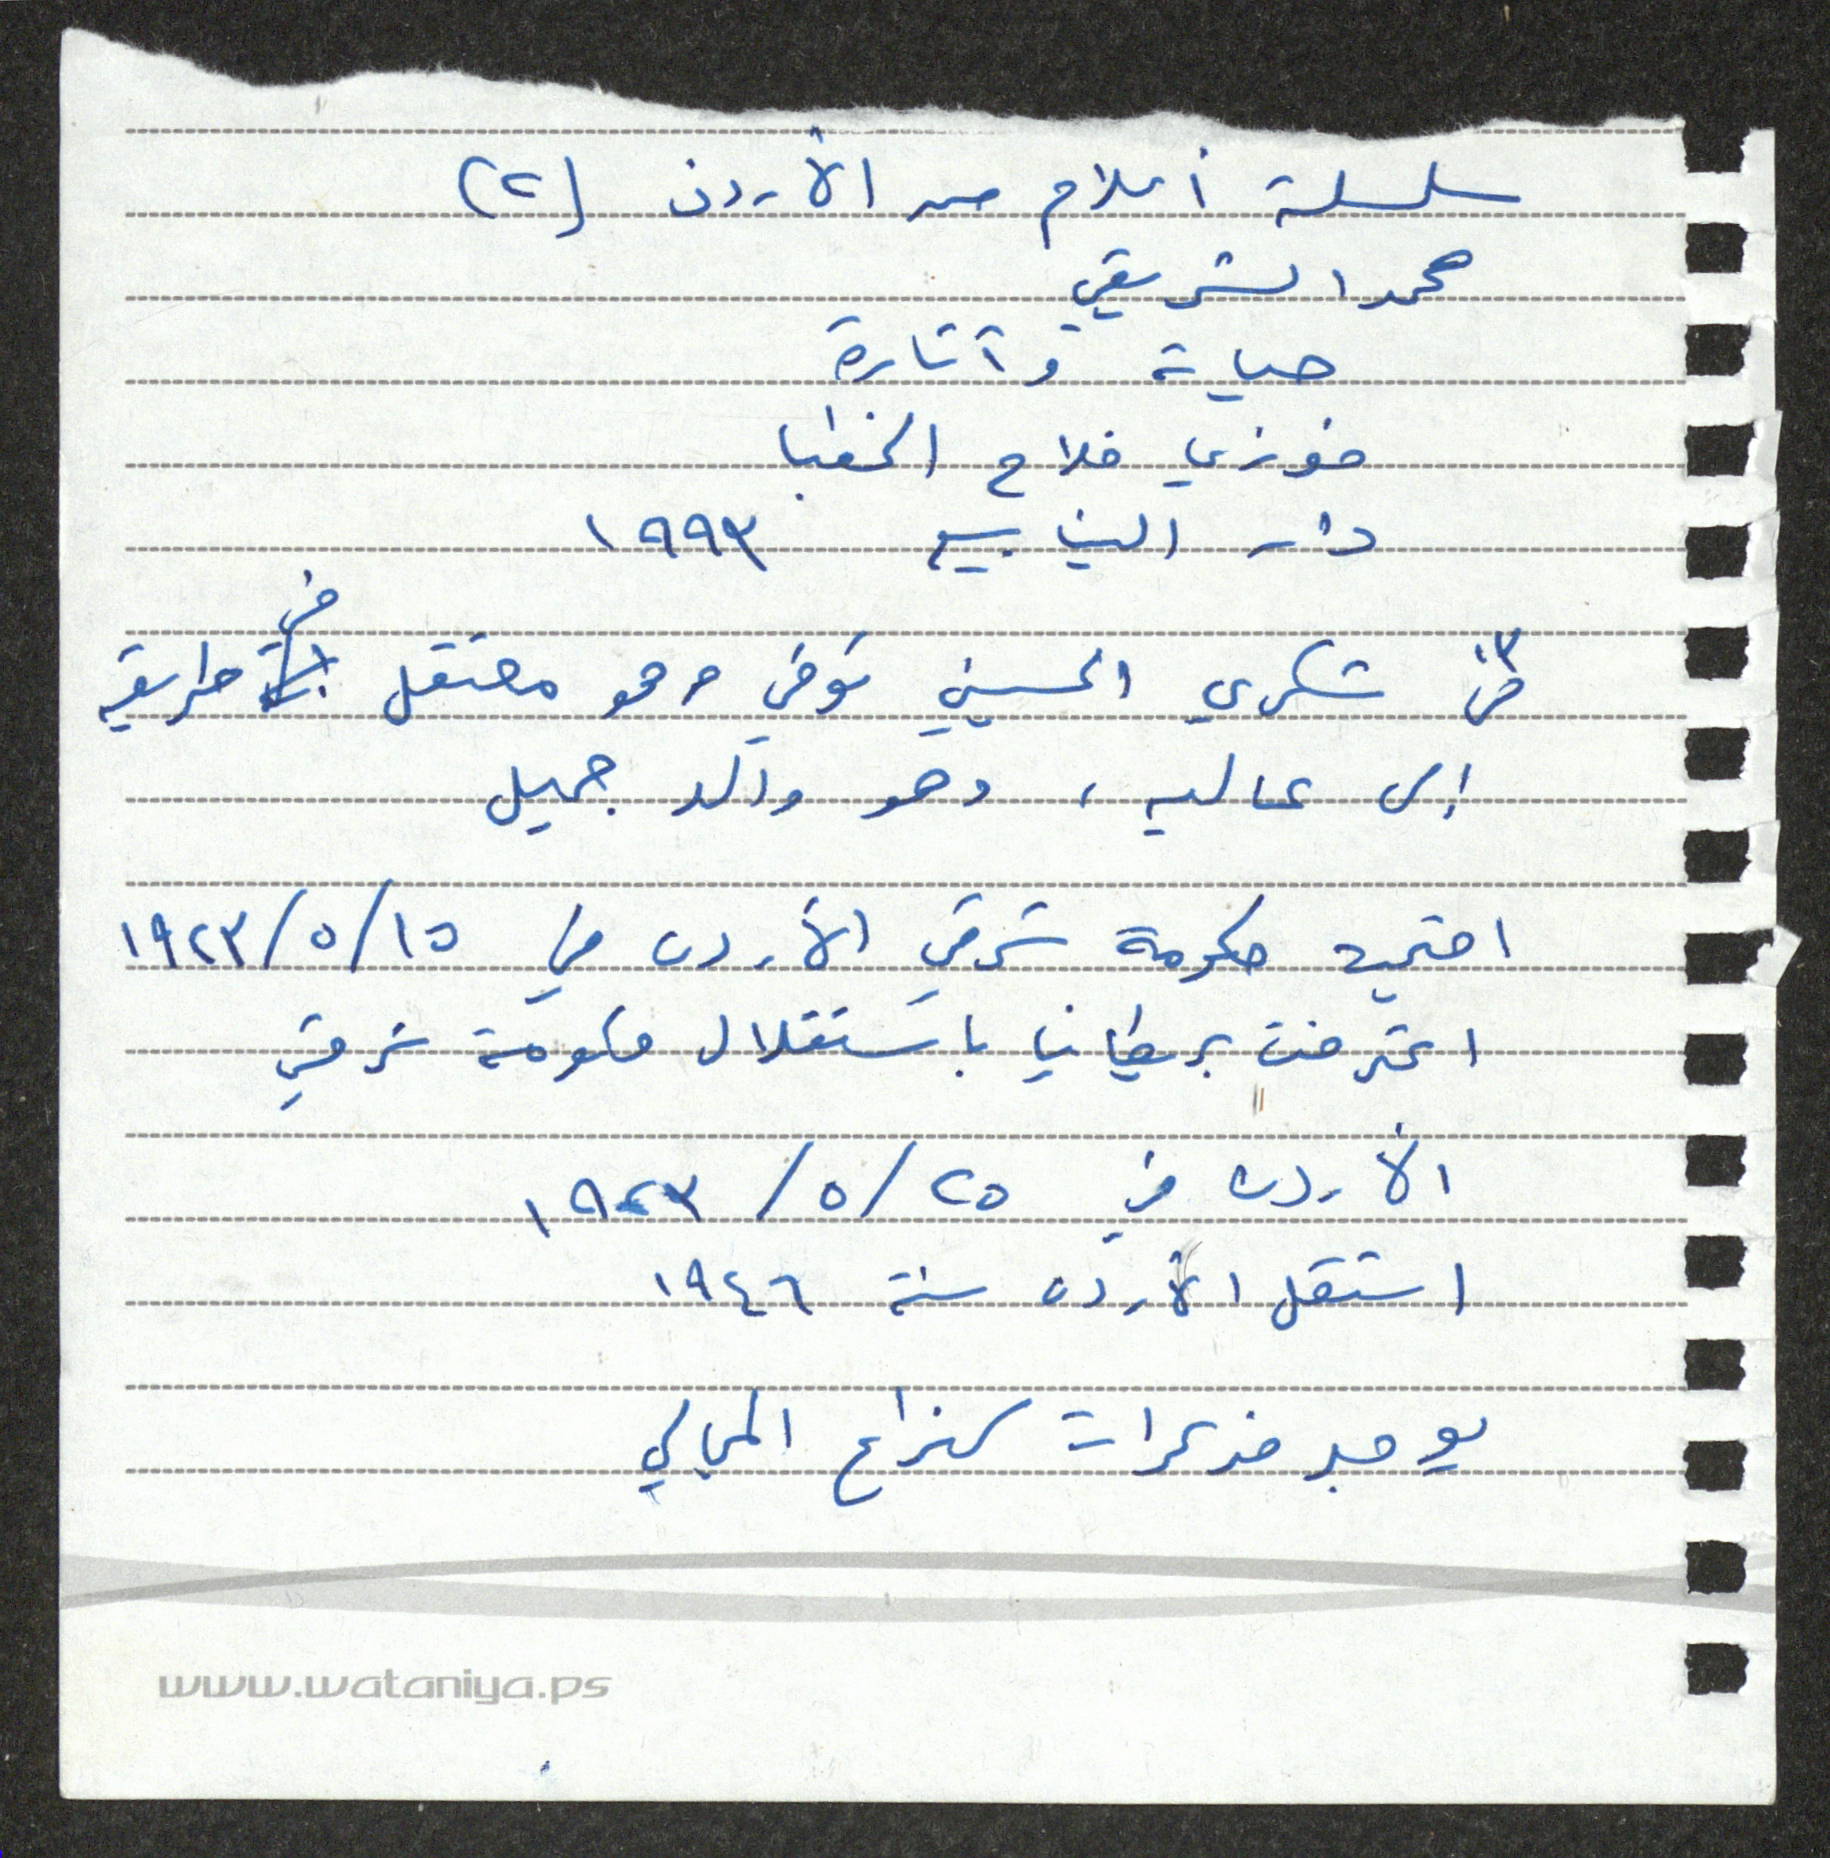 سلسلة أعلام من الأردن (٢)
محمد الشريقي
حياته وآثاره
فوزي فلاح الخطبا
دار الينابيع ١٩٩٣
شكري الحسيني توفي وهو معتقل في طريقه
إلى عاليه، وهو والد جميل
افتتح حكومة شرقي الأردن في ١٥/٥/١٩٢٣
اعترفت بريطانيا باستقلال حكومة شرقي
الأردن في ٢٥/٥/١٩٢٣
استقل الأردن سنة ١٩٤٦
يوجد مذكرات لهزاع المجالي
www.wataniya.ps